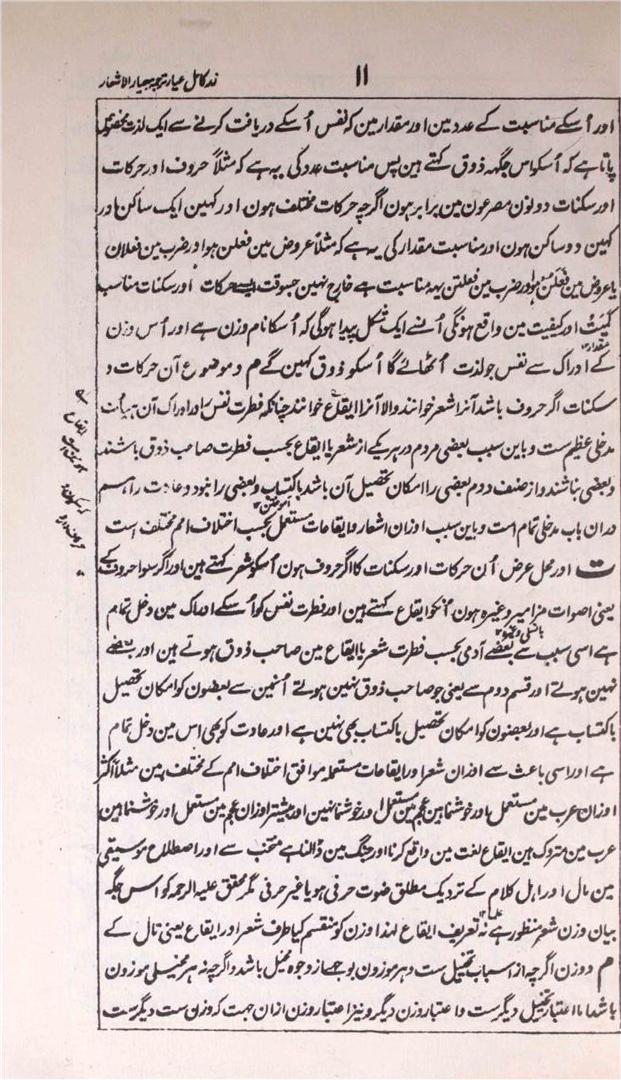 ۱۱
زر کامل عیار ترجمہ معیار الاشعار
اور اُسکے مناسبت کے عدد مین اور مقدار مین کہ نفس اُسکے دریافت کرنے سے ایک لذت مخصوص
پاتا ہے کہ اُسکو اس جگہہ ذوق کہتے ہین پس مناسبت عدد کی یہ ہے کہ مثلاً حروف اور حرکات
اور سکنات دونون مصرعون مین برابر ہون اگرچہ حرکات مختلف ہون اور کہین ایک ساکن اور
کہین دو ساکن ہون اور مناسبت مقدار کی یہ ہے کہ مثلاً عروض مین فعلن ہو اور ضرب مین فعلان
یا عروض مین فعلن ہو اور ضرب مین فعلتن یہہ مناسبت سے خارج نہین جسوقت ایسے حرکات اور سکنات مناسب
کمیت اور کیفیت مین واقع ہونگی اُنسے ایک شکل پیدا ہوگی کہ اُسکا نام وزن ہے اور اُس وزن
مقدار۱۲
کے ادراک سے نفس جو لذت اُٹھائے گا اُسکو ذوق کہین گے م و موضوع آن حرکات و
سکنات اگر حروف باشد آنرا شعر خوانند والا آنرا ایقاع خوانند چنانکہ فطرت نفس را در ادراک آن ہیأت
مدخلی عظیم ست و باین سبب بعضی مردم در ہر یکے از شعر یا ایقاع بحسب فطرت صاحب ذوق باشند
و بعضی نباشند و از صنف دوم بعضی را امکان تحصیل آن باشد باکتساب و بعضی را نبود و عادت را ہم
در ان باب مدخلی تمام است و باین سبب اوزان اشعار و ایقاعات مستعمل بحسب اختلاف امم مختلف است
ت اور محل عرض اُن حرکات اور سکنات کا اگر حروف ہون اُسکو شعر کہتے ہین اور اگر سوا حروف کے
یعنی اصوات مزامیر وغیرہ ہون اُنکو ایقاع کہتے ہین اور فطرت نفس کو اُسکے ادراک مین دخل تمام
ہے اسی سبب سے بعضے آدمی بحسب فطرت شعر یا ایقاع مین صاحب ذوق ہوتے ہین اور بعضے
نہین ہوتے اور قسم دوم سے یعنی جو صاحب ذوق نہین ہوتے اُنمین سے بعضون کو امکان تحصیل
باکتساب ہے اور بعضون کو امکان تحصیل باکتساب بھی نہین ہے اور عادت کو بھی اس مین دخل تمام
ہے اور اسی باعث سے اوزان شعر اور ایقاعات مستعملہ موافق اختلاف امم کے مختلف ہین مثلاً اکثر
اوزان عرب مین مستعمل اور خوشنما ہین عجم مین مستعمل اور خوشنما نہین اور بیشتر اوزان عجم مین مستعمل اور خوشنما ہین
عرب مین متروک ہین ایقاع لغت مین واقع کرنا اور جنگ مین ڈالنا ہے منتخب سے اور اصطلاح موسیقی
مین تال اور اہل کلام کے نزدیک مطلق صوت حرفی ہو یا غیر حرفی مگر محقق علیہ الرحمہ کو اس جگہ
بیان وزن شعر منظور ہے نہ تعریف ایقاع لہذا وزن کو منقسم کیا طرف شعر اور ایقاع یعنی تال کے
م و وزن اگرچہ از اسباب تخییل ست و ہر موزون بوجہے از وجوہ مخیل باشد و اگرچہ نہ ہر مخیلی موزون
باشد اما اعتبار تخییل دیگر ست و اعتبار وزن دیگر و نیز اعتبار وزن ازان جہت کہ وزن ست دیگر ست